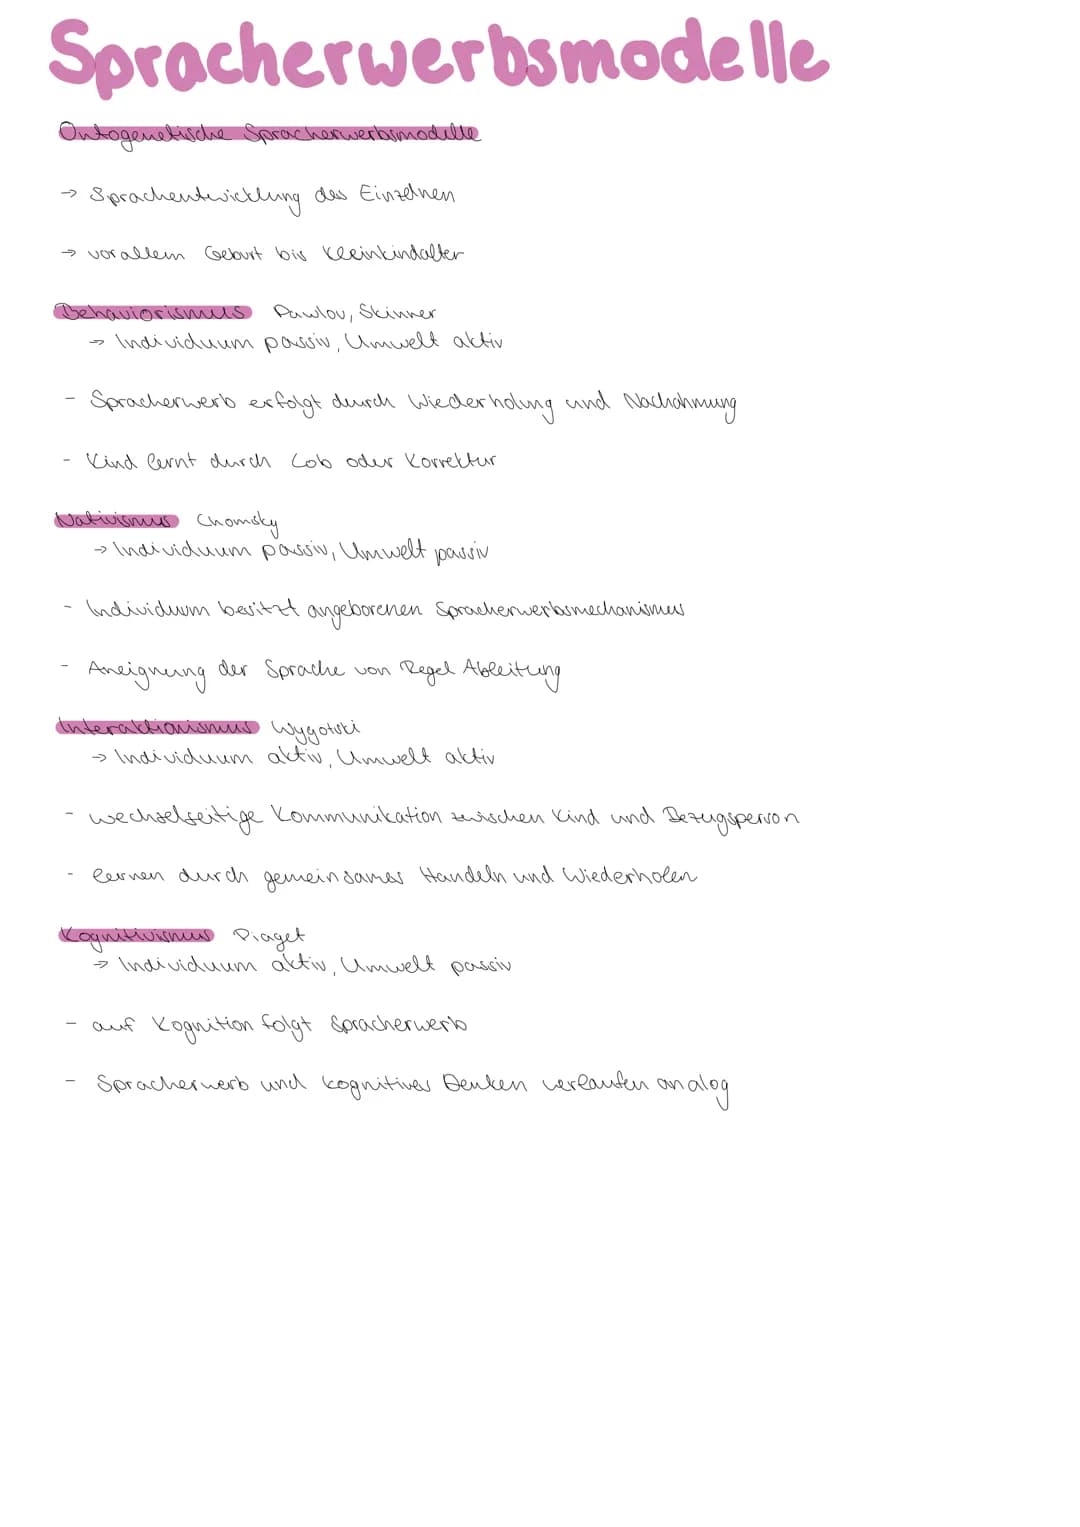 Spracherwerbsmodelle
Ontogenetische Spracherwerbsmodelle
→ Sprachentwicklung des Einzelnen
→ vorallem Geburt bis Kleinkindalter
Behaviorismus Pawlov, Skinner
→ Individuum passiv, Umwelt aktiv
- Spracherwerb erfolgt durch Wiederholung und Nachahmung
- Kind lernt durch Lob oder Korrektur
Nativismus Chomsky
→ Individuum passiv, Umwelt passiv
- Individuum besitzt angeborenen Spracherwerbsmechanismus
- Aneignung der Sprache von Regel Ableitung
Interaktionismus Wygotski
→ Individuum aktiv, Umwelt aktiv
- wechselseitige Kommunikation zwischen Kind und Bezugsperson
- lernen durch gemeinsames Handeln und Wiederholen
Kognitivismus Piaget
→ Individuum aktiv, Umwelt passiv
- auf Kognition folgt Spracherwerb
- Spracherwerb und kognitives Denken verlaufen analog